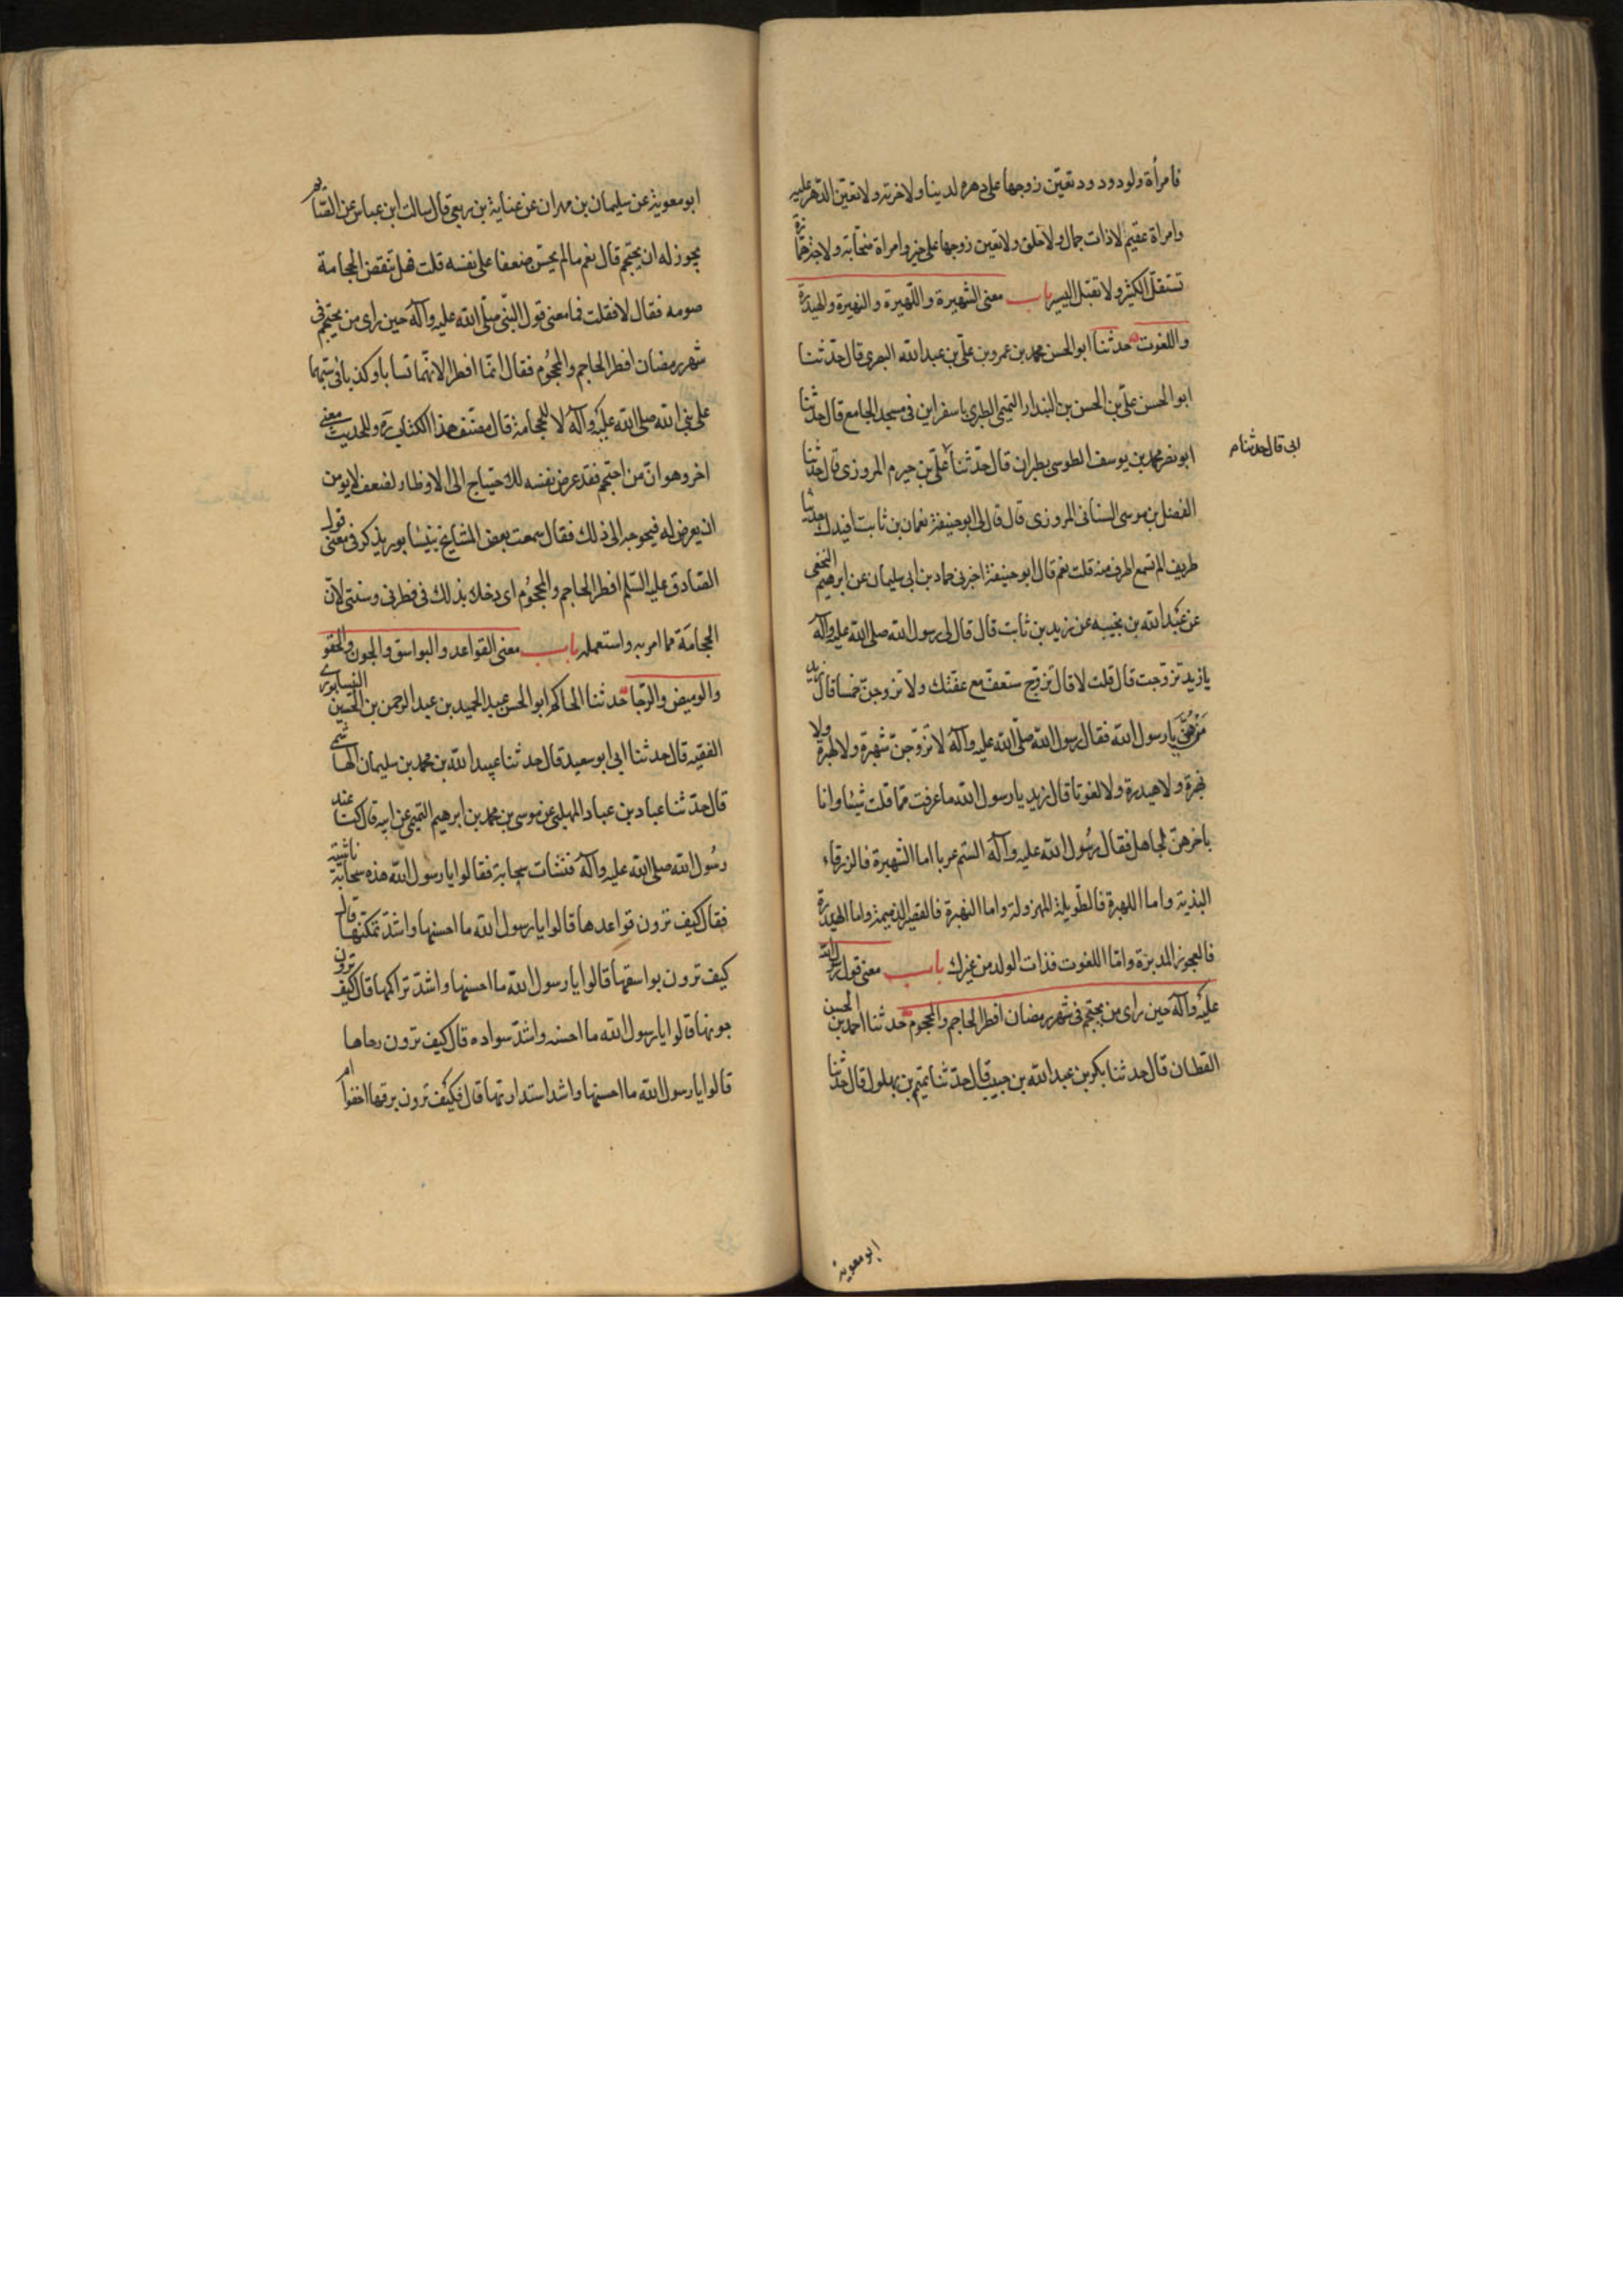 فامرأة ولود ودود تعين زوجها على دهره لدينا ولاخرته ولا تعين الدهر عليه
وامراة عقيم لا ذات جمال ولا خلق ولا تعين زوجها على خير وامراة صخابة ولاجة همازة
تستقل الكثير ولا تقبل اليسير باب معنى الشهبرة واللهبرة والنهبرة والهيدرة
واللفوت حدثنا ابو الحسن محمد بن عمرو بن علي بن عبد الله البصري قال حدثنا
ابو الحسن علي بن الحسن بن البندار التميمى الطبرى باسفراين فى مسجد الجامع قال حدثنا
ابو نصر محمد بن يوسف الطوسى بطبران قال حدثنا علي بن خشرم المروزى قال حدثنا
ابى قال حدثنا م
الفضل بن موسى السنانى المروزى قال قال لى ابو حنيفة نعمان بن ثابت افيدك حديثا
طريف لم تسمع اطرف منه قلت نعم قال ابو حنيفة اخبرنى حماد بن ابى سليمان عن ابرهيم النخعى
عن عبد الله بن نجيبه عن زيد بن ثابت قال قال لى رسول الله صلى الله عليه وآله
يا زيد تزوجت قال قلت لا قال تزوج ستعفف مع عفتك ولا تزوجن خمسا قال زيد
من هن يا رسول الله فقال رسول الله صلى الله عليه وآله لا تزوجن شهبرة ولا لهبرة ولا
نهبرة ولا هيدرة ولا لفوتا قال زيد يا رسول الله ما عرفت مما قلت شيئا وانا
باخرهن لجاهل فقال رسول الله عليه وآله الستم عربا اما الشهبرة فالزرقاء
البذية واما اللهبرة فالطويلة المهزولة واما النهبرة فالقصيرة الذميمة واما الهيدرة
فالعجوز المدبرة واما اللفوت فذات الولد من غيرك باب معنى قول رسول الله
عليه وآله حين راى من يحتجم فى شهر رمضان افطر الحاجم والمحجوم حدثنا احمد بن الحسن
القطان قال حدثنا بكر بن عبد الله بن حبيب قال حدثنا تميم بن بهلول قال حدثنا
ابو معوية
ابو معوية عن سليمان بن مهران عن عباية بن ربعى قال سالت ابن عباس عن الصائم
يجوز له ان يحتجم قال نعم ما لم يخش ضعفا على نفسه قلت فهل تنقض الحجامة
صومه فقال لا فقلت فما معنى قول النبي صلى الله عليه وآله حين راى من يحتجم فى
شهر رمضان افطر الحاجم والمحجوم فقال انما افطرا لانهما تسابا وكذبا فى سبهما
على نبى الله صلى الله عليه وآله لا للحجامة قال مصنف هذا الكتاب ره وللحديث معنى
اخر وهو ان من احتجم فقد عرض نفسه للاحتياج الى الافطار لضعف لا يومن
ان يعرض له فيحوجه الى ذلك فقال سمعت بعض المشايخ بنيسابور يذكر فى معنى قول
الصادق عليه السلم افطر الحاجم والمحجوم اى دخلا بذلك فى فطرتى وسنتى لان
الحجامة مما امر به واستعمله باب معنى القواعد والبواسق والجون والخفو
والوميض والرحا حدثنا الحاكم ابو الحسن عبد الحميد بن عبد الرحمن بن الحسين النيسابورى
الفقيه قال حدثنا ابى ابو سعيد قال حدثنا عبيد الله بن محمد بن سليمان الهاشمى
قال حدثنا عباد بن عباد المهلبى عن موسى بن محمد بن ابرهيم التميمى عن ابيه قال كنا عند
رسول الله صلى الله عليه وآله فنشات سحابة فقالوا يا رسول الله هذه سحابة ناشية
فقال كيف ترون قواعدها قالوا يا رسول الله ما احسنها واشد تمكنها قال
كيف ترون بواسقها قالوا يا رسول الله ما احسنها واشد تراكمها قال كيف ترون
جونها قالوا يا رسول الله ما احسنه واشد سواده قال كيف ترون رحاها
قالوا يا رسول الله ما احسنها واشد استدارتها قال فكيف ترون برقها اخفوا ام